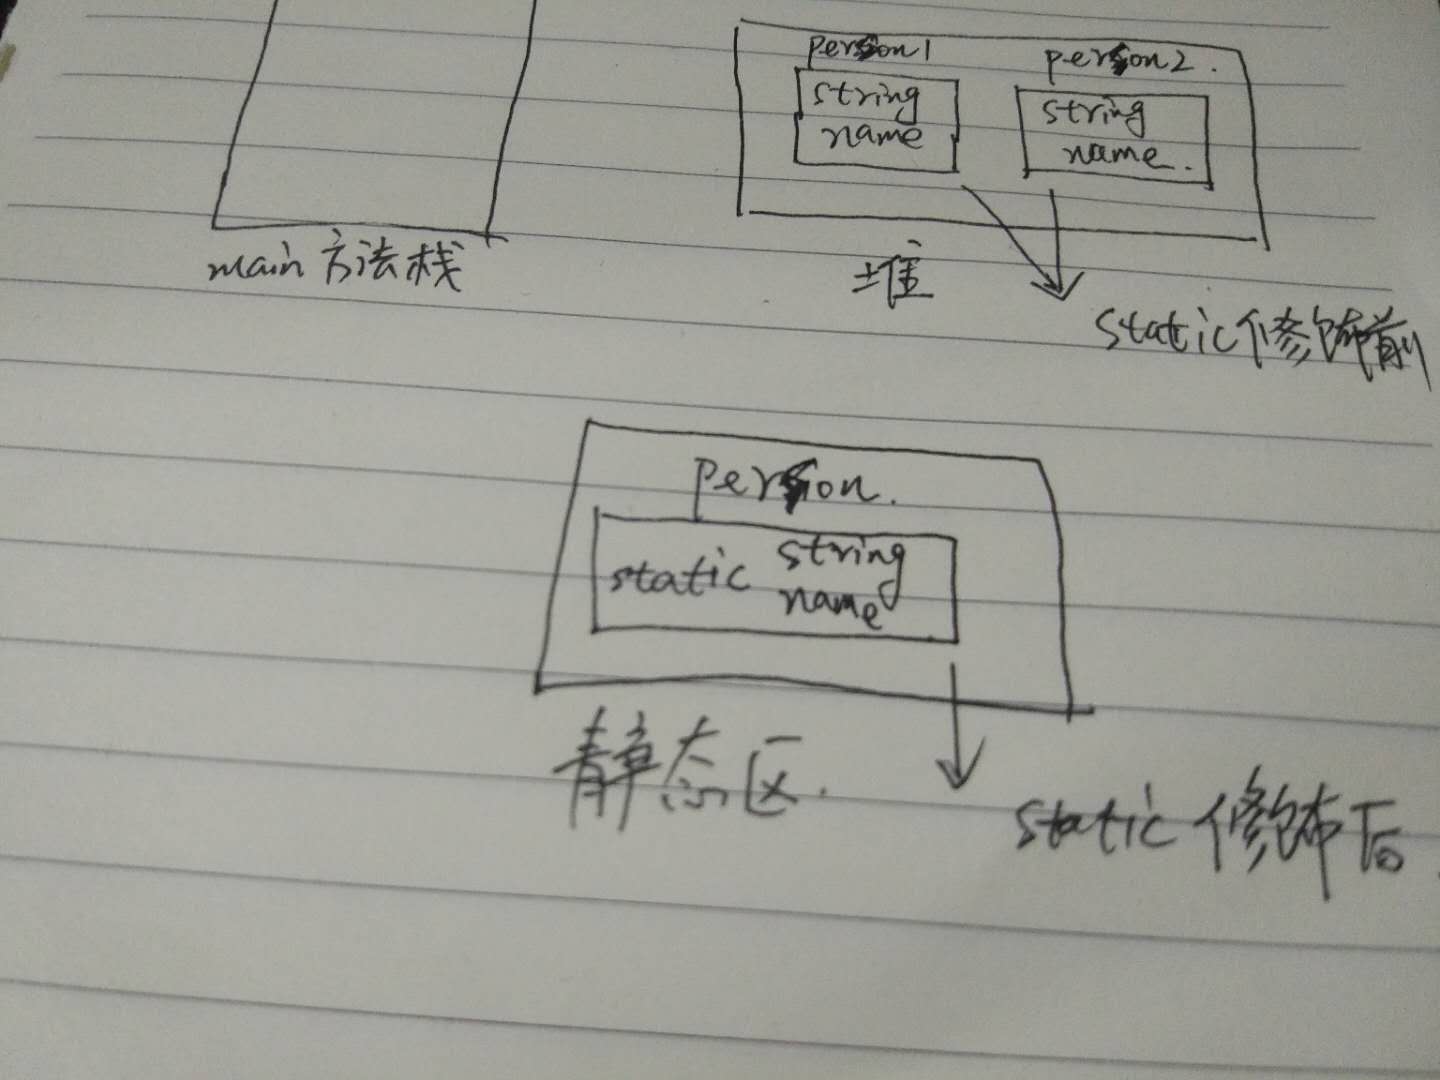 person1
string
name
person2.
string
name.
main方法栈
堆
static修饰前
person.
static string
name
静态区.
static修饰后